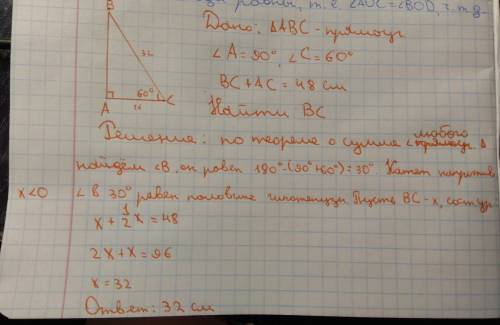 равны, т.е. ∠AOC=∠BOD, ч.т.д.
B
32
60°
A
16
C
Дано: △ABC - прямоуг
∠A=90°, ∠C=60°
BC+AC=48 см
Найти BC
Решение: по теореме о сумме ∠ любого △
найдём ∠B, он равен 180°-(90°+60°)=30° Катет напротив
x<0
∠B 30° равен половине гипотенузы. Пусть BC-x, сост ур:
x+1/2x=48
2x+x=96
x=32
Ответ: 32 см